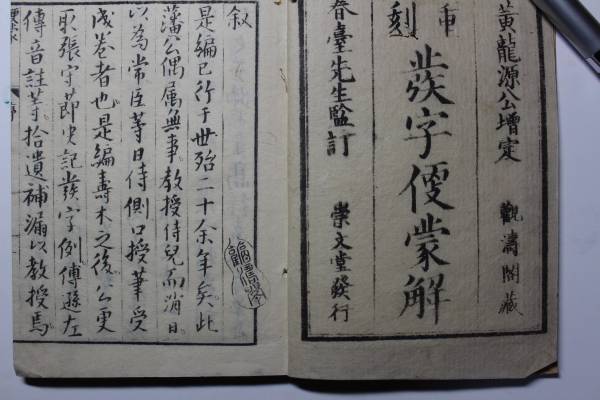 黃龍源公增定
觀濤閣藏
重刻
發字便蒙解
春臺先生監訂
崇文堂發行
叙
是編已行于世殆二十余年矣此
藩公偶属典事教授侍兒而消日
以為常臣等日侍側口授筆受
成卷者也是編壽木之後公更
取張守莭史記發字例傅遜左
傳音註等拾遺補漏以教授焉